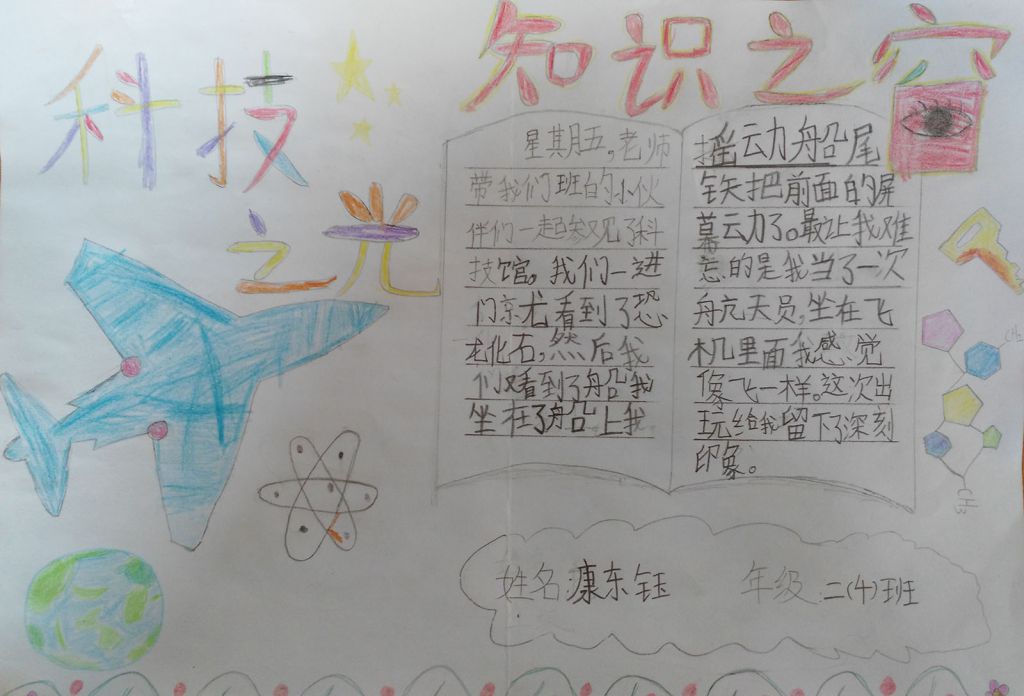 科技
之光
知识之窗
星其月五，老师
带我们班的小伙
伴们一起参观了科
技馆，我们一进
门京尤看到了恐
龙化石，然后我
们又看到了船我
坐在了船上我
摇云力船尾
铁把前面的屏
幕云力了。最让我难
忘的是我当了一次
航天员，坐在飞
机里面我感觉
像飞一样。这次出
玩给我留下了深刻
印象。
CH₂
CH₃
姓名：康东钰
年级：二(4)班